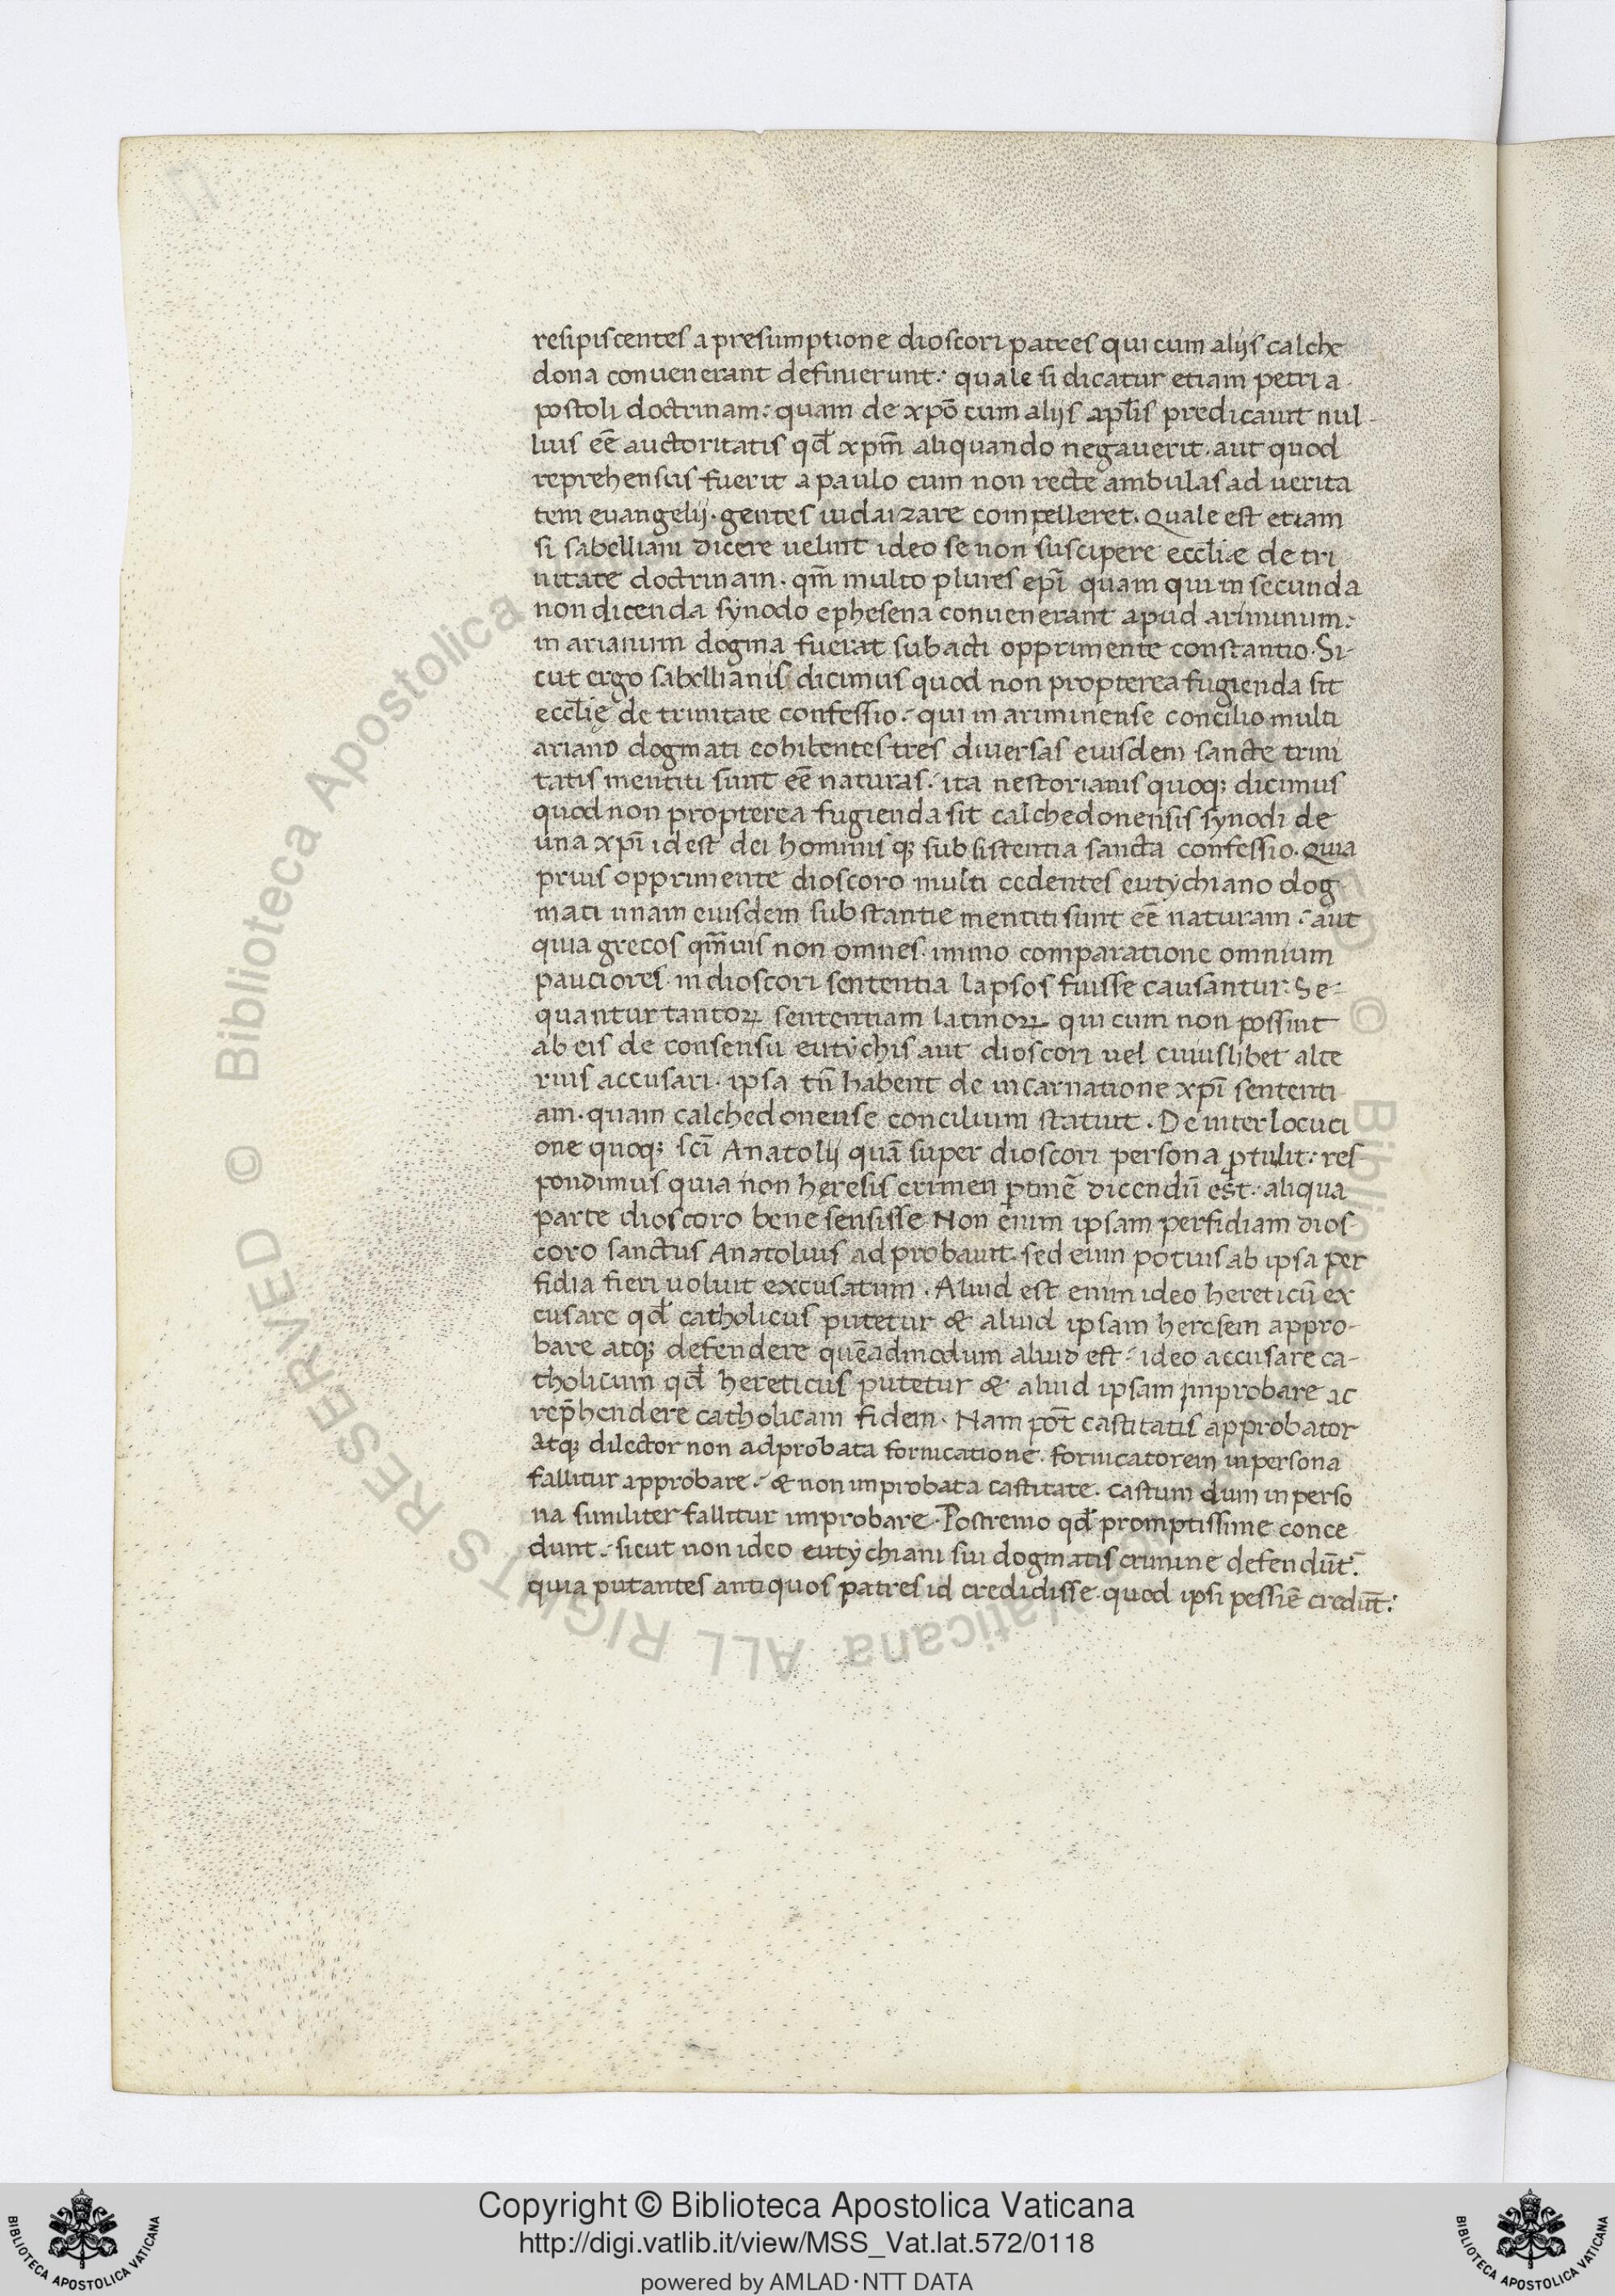 resipiscentes a presumptione dioscori patres qui cum aliis calche
dona convenerant definierunt: quale si dicatur etiam petri a
postoli doctrinam: quam de xp̄o cum aliis apl̄is predicavit nul-
lius eē auctoritatis qđ xp̄m aliquando negaverit. aut quod
reprehensus fuerit a paulo cum non recte ambulas ad verita
tem evangelij. gentes iudaizare compelleret. Quale est etiam
si sabelliani dicere velint ideo se non suscipere eccl̄iæ de tri
nitate doctrinam. qm̄ multo plures ep̄i quam qui in secunda
non dicenda synodo ephesena convenerant apud ariminum:
in arianum dogma fuerat subacti opprimente constantio. Si-
cut ergo sabellianis dicimus quod non propterea fugienda sit
eccl̄ię de trinitate confessio: qui in ariminense concilio multi
ariano dogmati cohibentes tres diversas eiusdem sancte trini
tatis mentiti sunt eē naturas: ita nestorianis quoq; dicimus
quod non propterea fugienda sit calchedonensis synodi de
una xp̄i id est dei hominis q; subsistentia sancta confessio. Quia
prius opprimente dioscoro multi cedentes eutychiano dog
mati unam eiusdem substantie mentiti sunt eē naturam: aut
quia grecos qm̄vis non omnes. immo comparatione omnium
pauciores. in dioscori sententia lapsos fuisse causantur: Se-
quantur tantoꝝ sententiam latinoꝝ qui cum non possint
ab eis de consensu eutychis aut dioscori vel cuiuslibet alte
rius accusari. ipsa tn̄ habent de incarnatione xp̄i sententi
am. quam calchedonense concilium statuit. De interlocuti
one quoq; sc̄i Anatolij quā super dioscori persona ꝓtulit: res
pondimus quia non hęresis crimen ꝑtinē dicendū est: aliqua
parte dioscoro bene sensisse Non enim ipsam perfidiam dios
coro sanctus Anatolius adprobavit. sed eum potius ab ipsa per
fidia fieri voluit excusatum. Aliud est enim ideo hereticū ex
cusare qđ catholicus putetur & aliud ipsam heresem appro-
bare atq; defendere quēadmodum aliud est: ideo accusare ca-
tholicum qđ hereticus putetur & aliud ipsam improbare ac
rep̄hendere catholicam fidem. Nam pōt castitatis approbator
atq; dilector non adprobata fornicatione. fornicatorem in persona
fallitur approbare: & non improbata castitate. castum dum in perso
na similiter fallitur improbare. Postremo qđ promptissime conce
dunt: sicut non ideo eutychiani sui dogmatis crimine defendūt:
quia putantes antiquos patres id credidisse quod ipsi pessiē credūt:
© Biblioteca Apostolica Vaticana ALL RIGHTS RESERVED
Copyright © Biblioteca Apostolica Vaticana
http://digi.vatlib.it/view/MSS_Vat.lat.572/0118
powered by AMLAD·NTT DATA
BIBLIOTECA APOSTOLICA VATICANA
BIBLIOTECA APOSTOLICA VATICANA